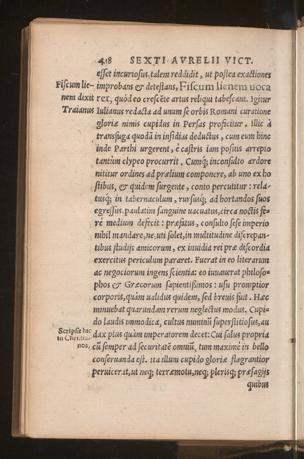 418 SEXTI AVRELII VICT.
esset incuriosus, talem reddidit, ut postea exactiones
Fiscum lie-
improbans & detestans, Fiscum lienem uoca
nem dixit
rex, quòd eo crescẽte artus reliqui tabescant. Igitur
Traianus
Iulianus redacta ad unum se orbis Romani curatione
gloriæ nimis cupidus in Persas proficitur. Illic à
transfuga quodã in insidias deductus, cum eum hinc
inde Parthi urgerent, è castris iam positis arrepto
tantùm clypeo procurrit. Cumq́; inconsulto ardore
nititur ordines ad prælium componere, ab uno ex ho
stibus, & quidem fugiente, conto percutitur: rela-
tusq́; in tabernaculum, rursusq́; ad hortandos suos
egressus, paulatim sanguine uacuatus, circa noctis ferè
medium defecit: præfatus, consulto sese imperio
nihil mandare, ne, uti solet, in multitudine discrepan-
tibus studijs amicorum, ex inuidia rei præ discordia
exercitus periculum pararet. Fuerat in eo literarum
ac negociorum ingens scientia: eo iuuauerat philoso-
phos & Græcorum sapientissimos: usu promptior
corporis, quàm ualidus quidem, sed breuis fuit. Hæc
minuebat quarundam rerum neglectus modus. Cupi-
do laudis immodica, cultus numinũ superstitiosus, au
Scripsit hæc
in Christia-
nos.
dax plus quàm imperatorem decet: Cui salus propria
cũ semper ad securitatẽ omniũ, tum maximè in bello
conseruanda est. Ita illum cupido gloriæ flagrantior
peruicerat, ut neq́; terræmotu, neq́; plerisq́; præsagijs
quibus